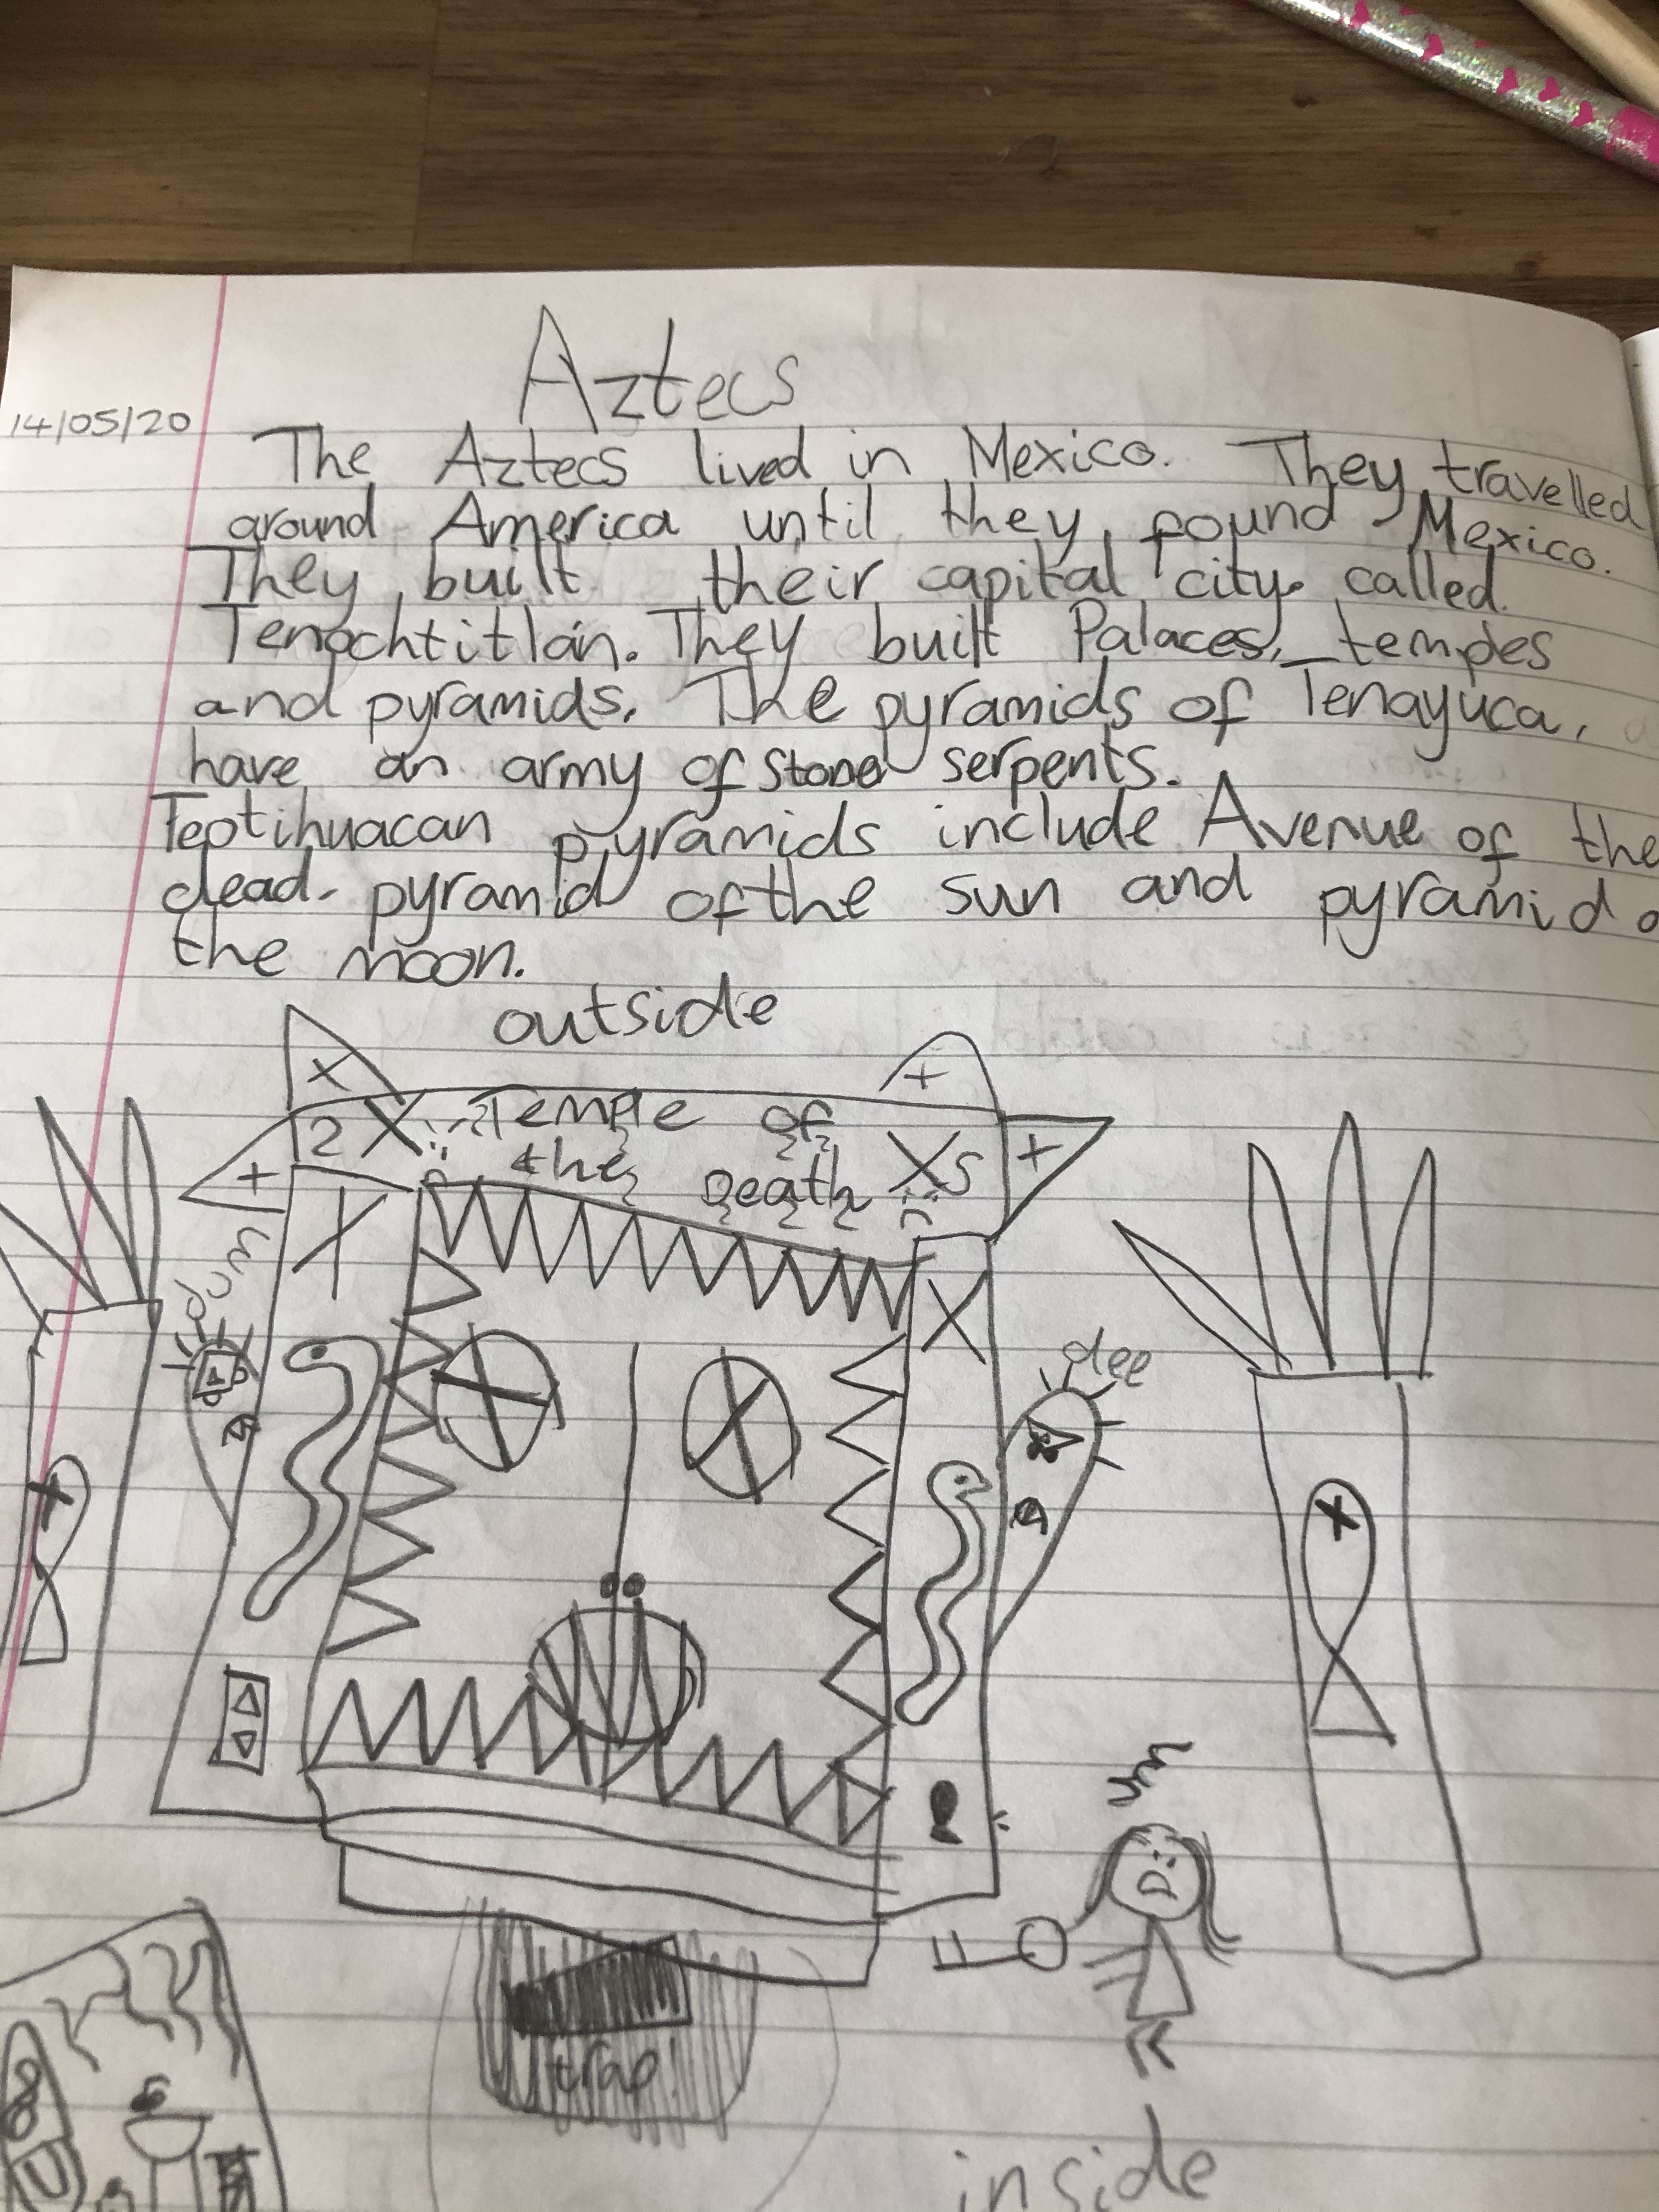 Aztecs
14/05/20
The Aztecs lived in Mexico. They travelled
around America until they found Mexico.
They built their capital city called
Tenochtitlán. They built Palaces, temples
and pyramids. The pyramids of Tenayuca,
have an army of stone serpents.
Teotihuacan pyramids include Avenue of the
dead. pyramid of the sun and pyramid o
the moon.
outside
Temple of
the Death
dum
dee
trap!
inside